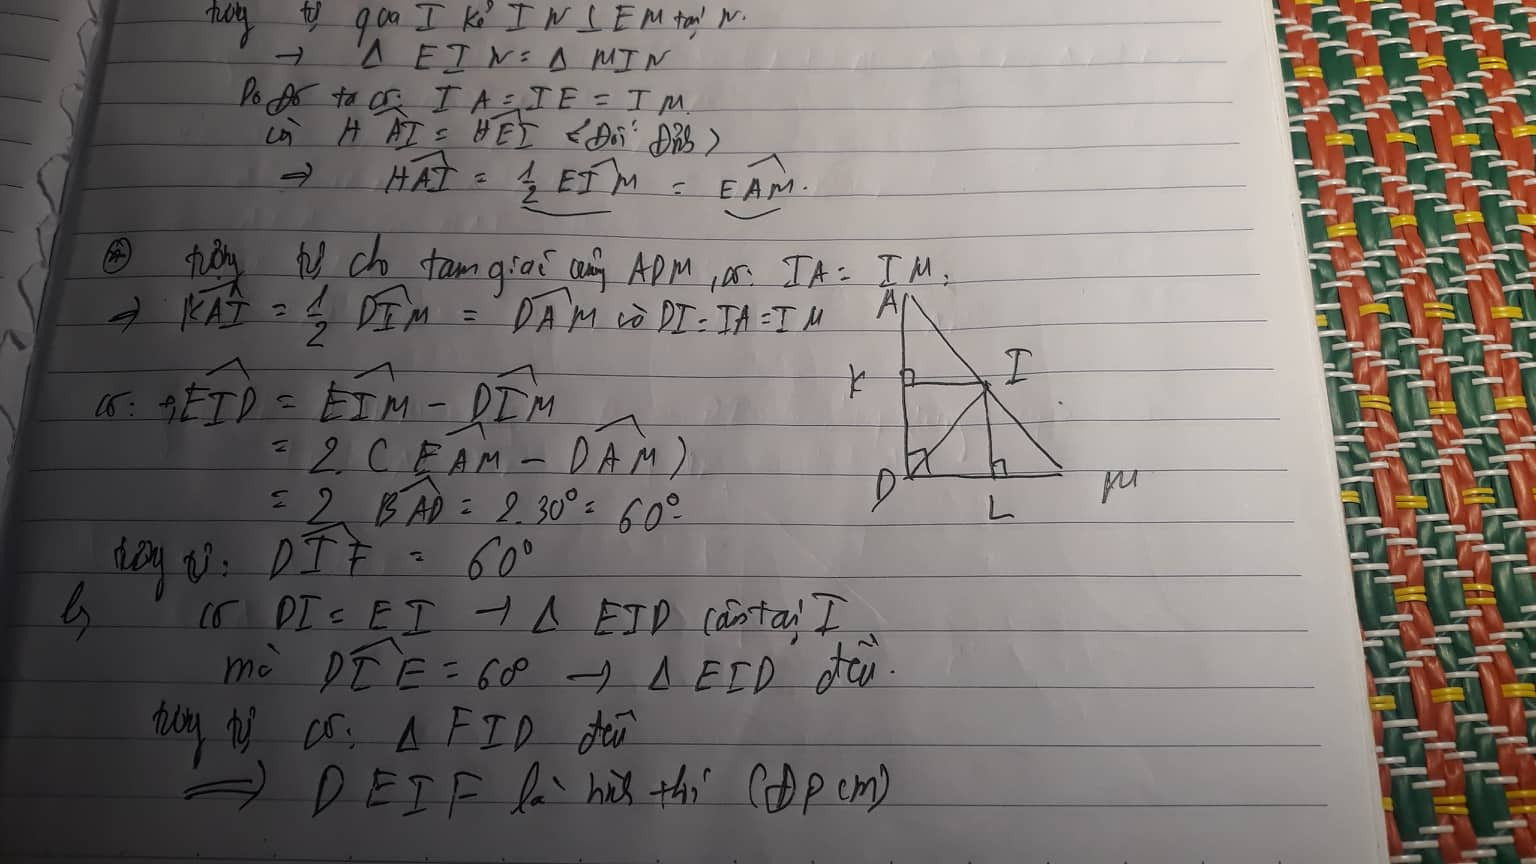 tương tự qua I kẻ IN ⊥ EM tại N.
→ Δ EIN = Δ MIN
Do đó ta có: IA = IE = IM
có HAI = HEI (Đối đỉnh)
⇒ HAI = 1/2 EIM = EAM.
tương tự cho tam giác vuông ADM, có: IA = IM;
⇒ KAI = 1/2 DIM = DAM có DI = IA = IM
có: +, EID = EIM - DIM
= 2. ( EAM - DAM )
= 2 BAD = 2.30° = 60°
tương tự: DIF = 60°
có DI = EI → Δ EID cân tại I
mà DIE = 60° → Δ EID đều.
tương tự có: Δ FID đều
⇒ DEIF là hình thoi (Đpcm)
A
I
K
D
L
M